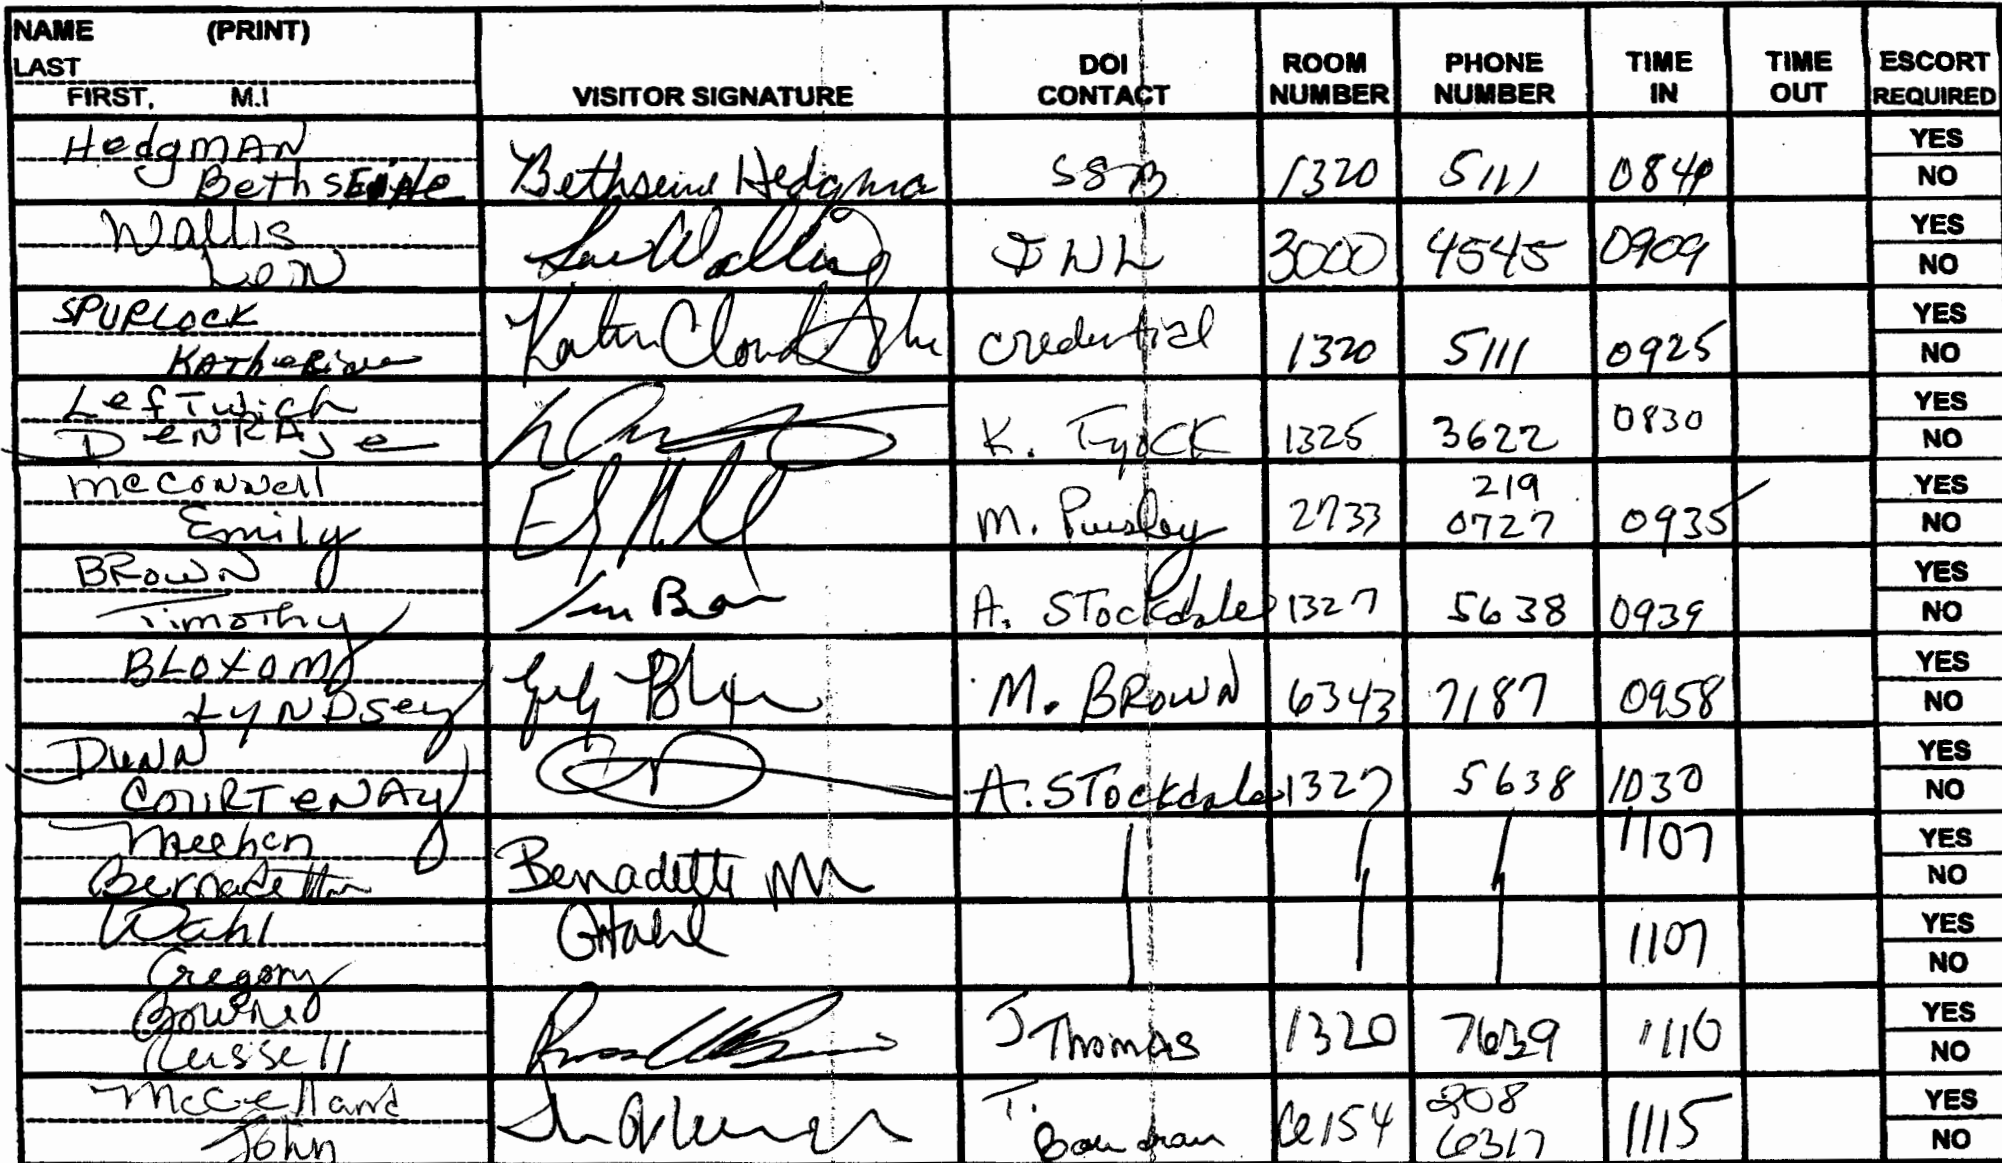 NAME (PRINT)
LAST
FIRST, M.I
VISITOR SIGNATURE
DOI CONTACT
ROOM NUMBER
PHONE NUMBER
TIME IN
TIME OUT
ESCORT REQUIRED
Hedgman
Bethseine Hedgma 1320 5111 YES
NO
Wallis
Len 3000 4545 0909 YES
NO
SPURLOCK
Katherine credential 1320 5111 0925 YES
NO
Leftwich
DenRAye K. 1325 3622 0830 YES
NO
McConnell
Emily M. 2733 219 0727 0935 YES
NO
BROWN
Timothy A. STockdale 1327 5638 0939 YES
NO
BLOXOM
LyNDsey M. BROWN 6343 7187 0958 YES
NO
DUNN
COURTENAY A. STockdale 1327 5638 1030 YES
NO
Meehan
Bernadette Bernadette 1107 YES
NO
Wahl
Gregory 1107 YES
NO
Russell J Thomas 1320 7639 1110 YES
NO
McCelland
John T. 6154 208 6317 1115 YES
NO